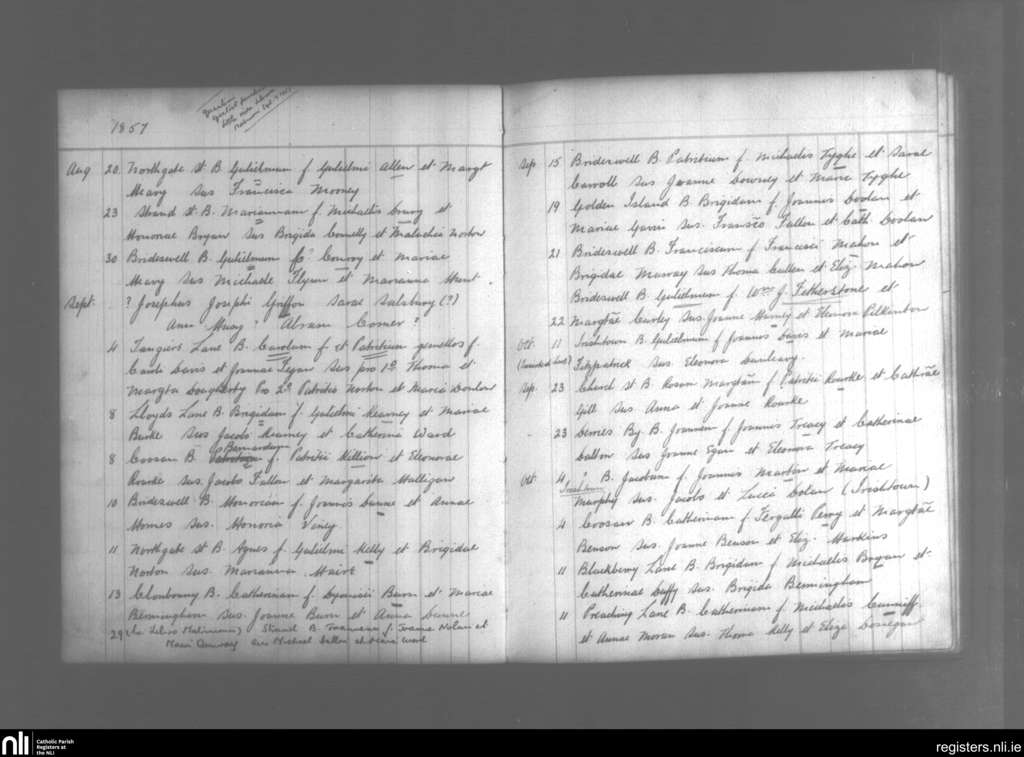 1857
Aug 20 Northgate St B Gulielmum f. Gulielmi Allen et Margt
Meary Sus Francisca Mooney
23 Strand St B. Mariannam f. Michaelis Conry et
Honoriae Bryan Sus Brigida Connelly et Malachia Norton
30 Brideswell B Gulielmum Conroy et Mariae
Meary Sus Michaele Flynn et Marianna Hunt
Sept ? Josephus Josephi Griffon Sarae Salsbury (?)
Anne ? Abram Comer ?
4 Tanguirs Lane B. Carolum f. et Patritium gemellos f.
Caroli Davis et Joannae Egan Sus pro 1o Thoma et
Margta Dougherty Pro 2o Patritio Norton et Maria
8 Lloyds Lane B Brigidam f. Gulielmi Kearney et Mariae
Burke Sus Jacobo Kearney et Catherina Ward
8 Coosan B Bernardum f. Patritii Killion et Eleonorae
Rourke Sus. Jacobo Fallon et Margarita Mulligan
10 Brideswell B. Honoriam f. Joannis Dunne et Annae
Homes Sus. Honoria Viney
11 Northgate St B. Agnes f. Gulielmi Kelly et Brigidae
Norton Sus. Marianna
13 Clonbonny B. Catherinam f. Dyonisii Burn et Mariae
Bermingham Sus. Joanne Burn et Anna Dunne
29 (In Libro Matrimonii) Strand B. f. Joanne Nolan et
Maria Conway
Sep 15 Brideswell B. Patritium f. Michaelis Tyghe et Sarae
Carroll Sus Joanne Downey et Maria Tyghe
19 Golden Island B Brigidam f. Joannis Doolan et
Mariae Gavin Sus. Fallon et Cath Doolan
21 Brideswell B. Franciscum f. Francisci Mahon et
Brigidae Murray Sus Thoma Cullen et Eliz. Mahon
Brideswell B Gulielmum f. Wm J. Fetherstone et
22 Curley Sus. Joanne Murney et Eleonora Pilkington
Oct. 11 Irishtown B. Gulielmum f. Joannis Davis et Mariae
Fitzpatrick Sus. Eleonora Dunleavy
Sep. 23 Church St B. Rosam f. Patritii Rourke et
Gill Sus Anna et Joanne Rourke
23 Derries By. B. Joannem f. Joannis Treacy et Catherinae
Dalton Sus Joanne Egan et Eleonora Treacy
Oct 4 Irishtown B. Jacobum f. Joannis Martin et Mariae
Murphy Sus. Jacobo et Lucia Dolan (Irishtown)
4 Coosan B. Catherinam f. Fergalli Percy et
Benson Sus. Joanne Benson et Eliz. Hawkins
11 Blackberry Lane B. Brigidam f. Michaelis Bryan et
Catherinae Duffy Sus. Brigida Bermingham
11 Preaching Lane B. Catherinam f. Michaelis Cunniff
et Annae Moran Sus. Thoma Kelly et Eliza Donegan
nli Catholic Parish
Registers at
the NLI
registers.nli.ie